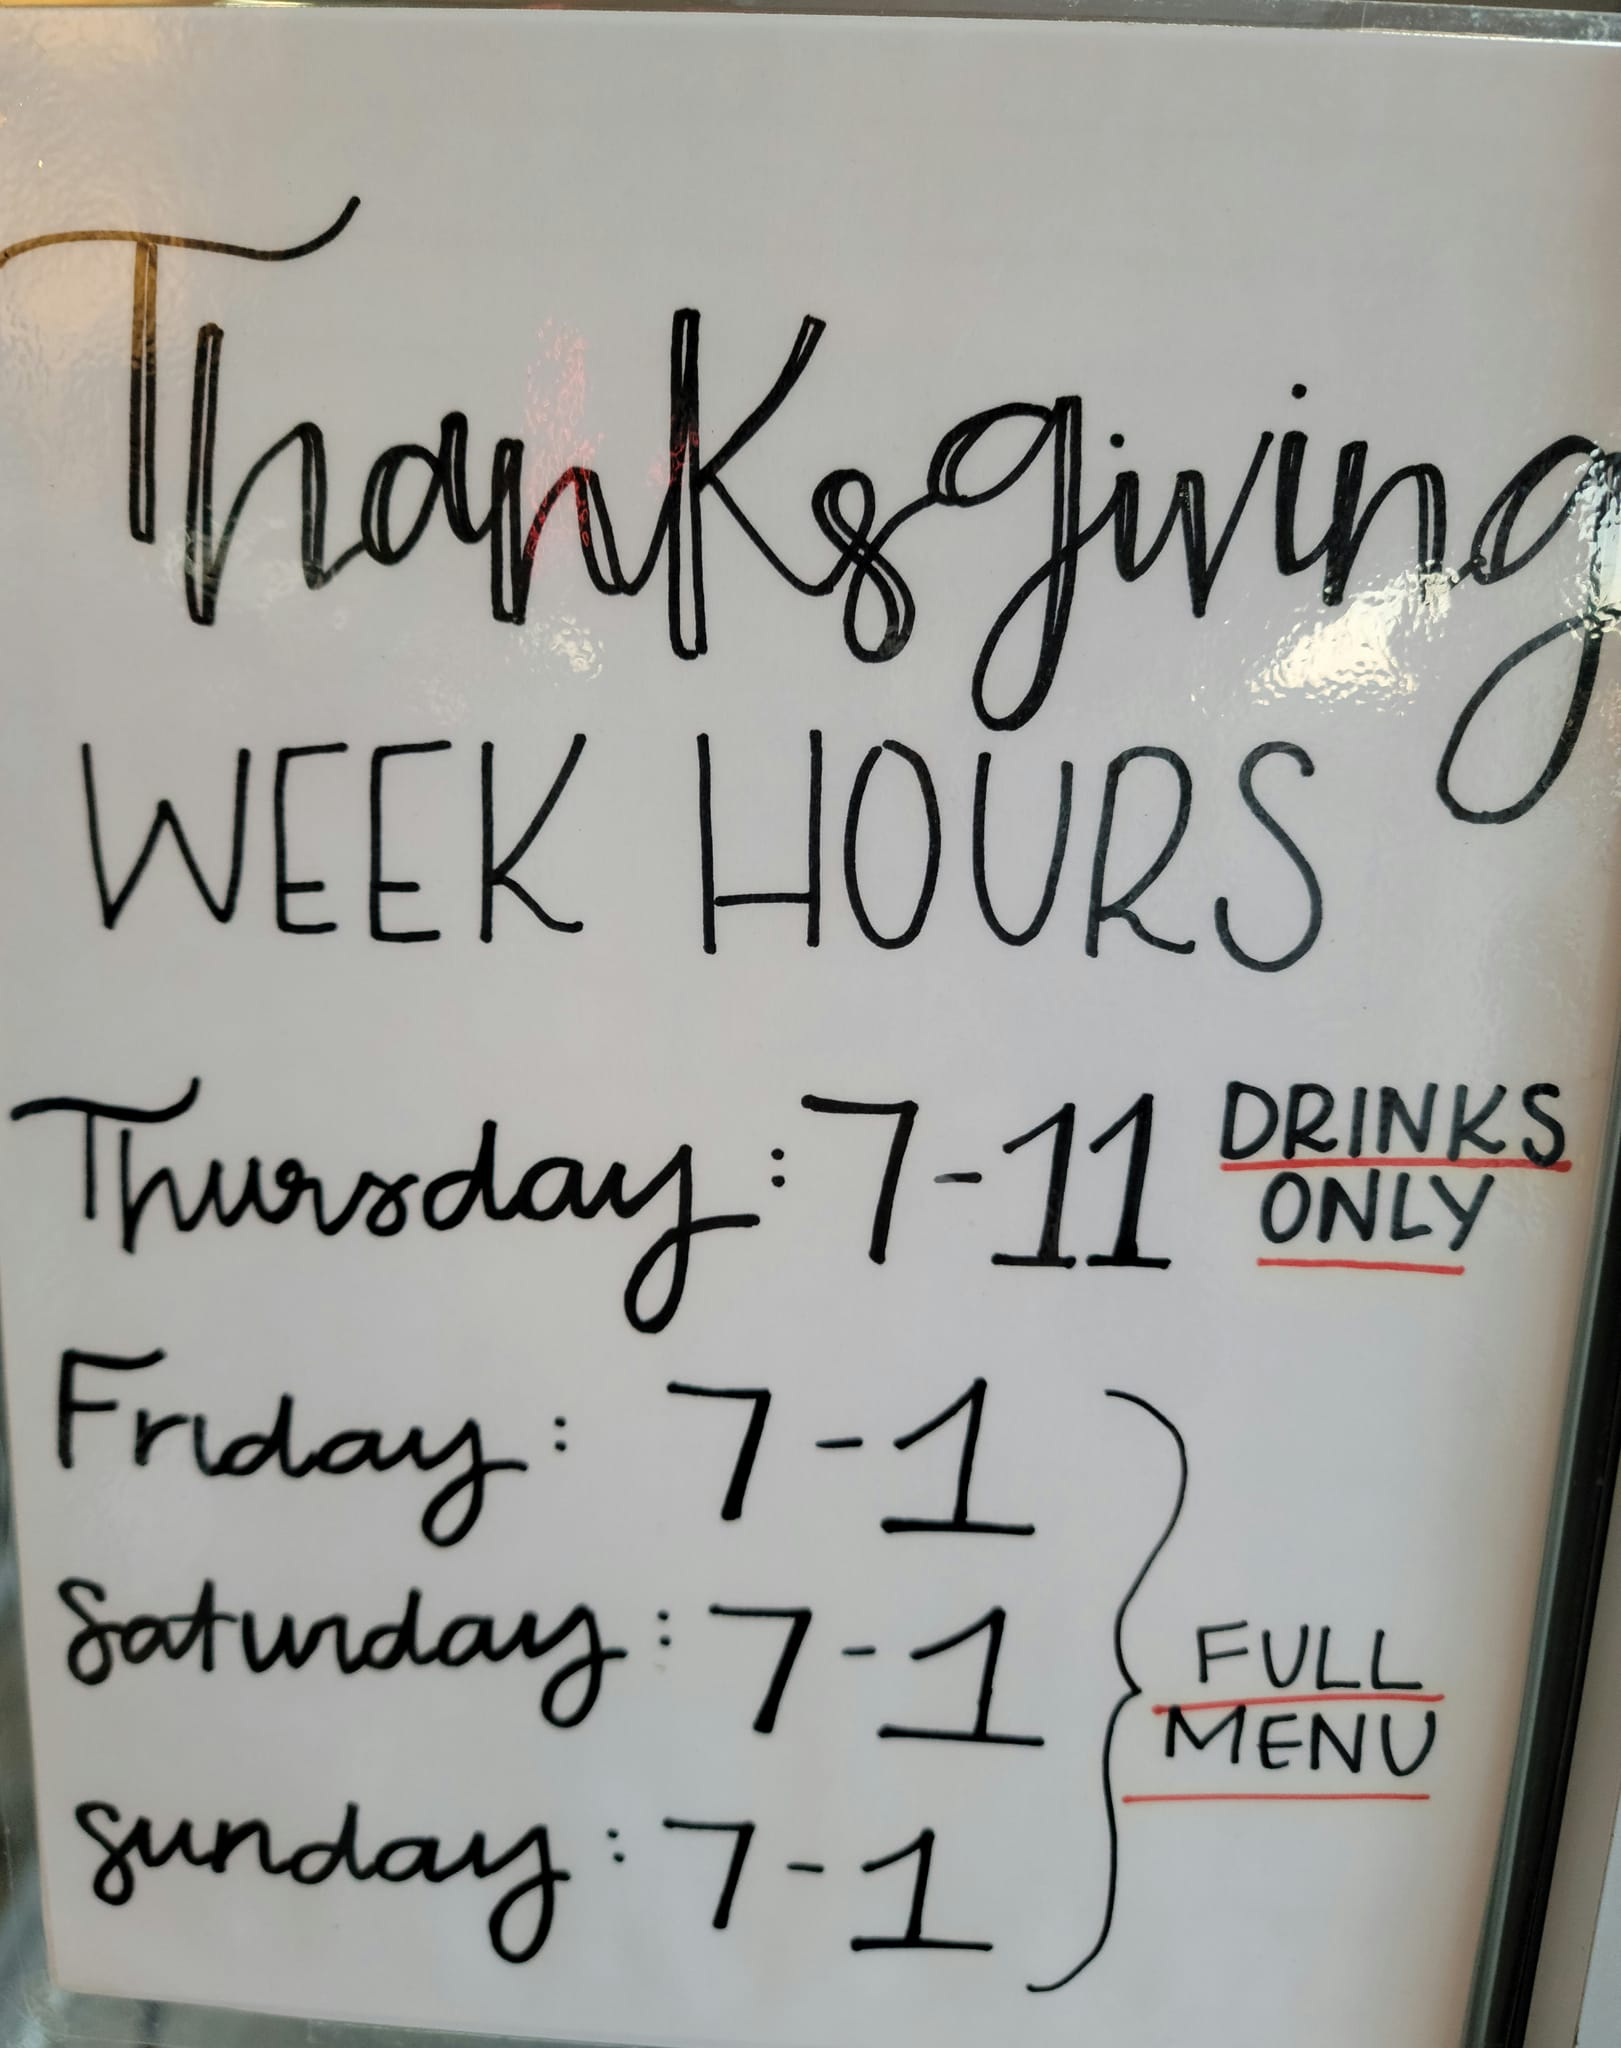 Thanksgiving
WEEK HOURS
Thursday: 7-11 DRINKS
ONLY
Friday: 7-1
Saturday: 7-1
FULL
MENU
Sunday: 7-1